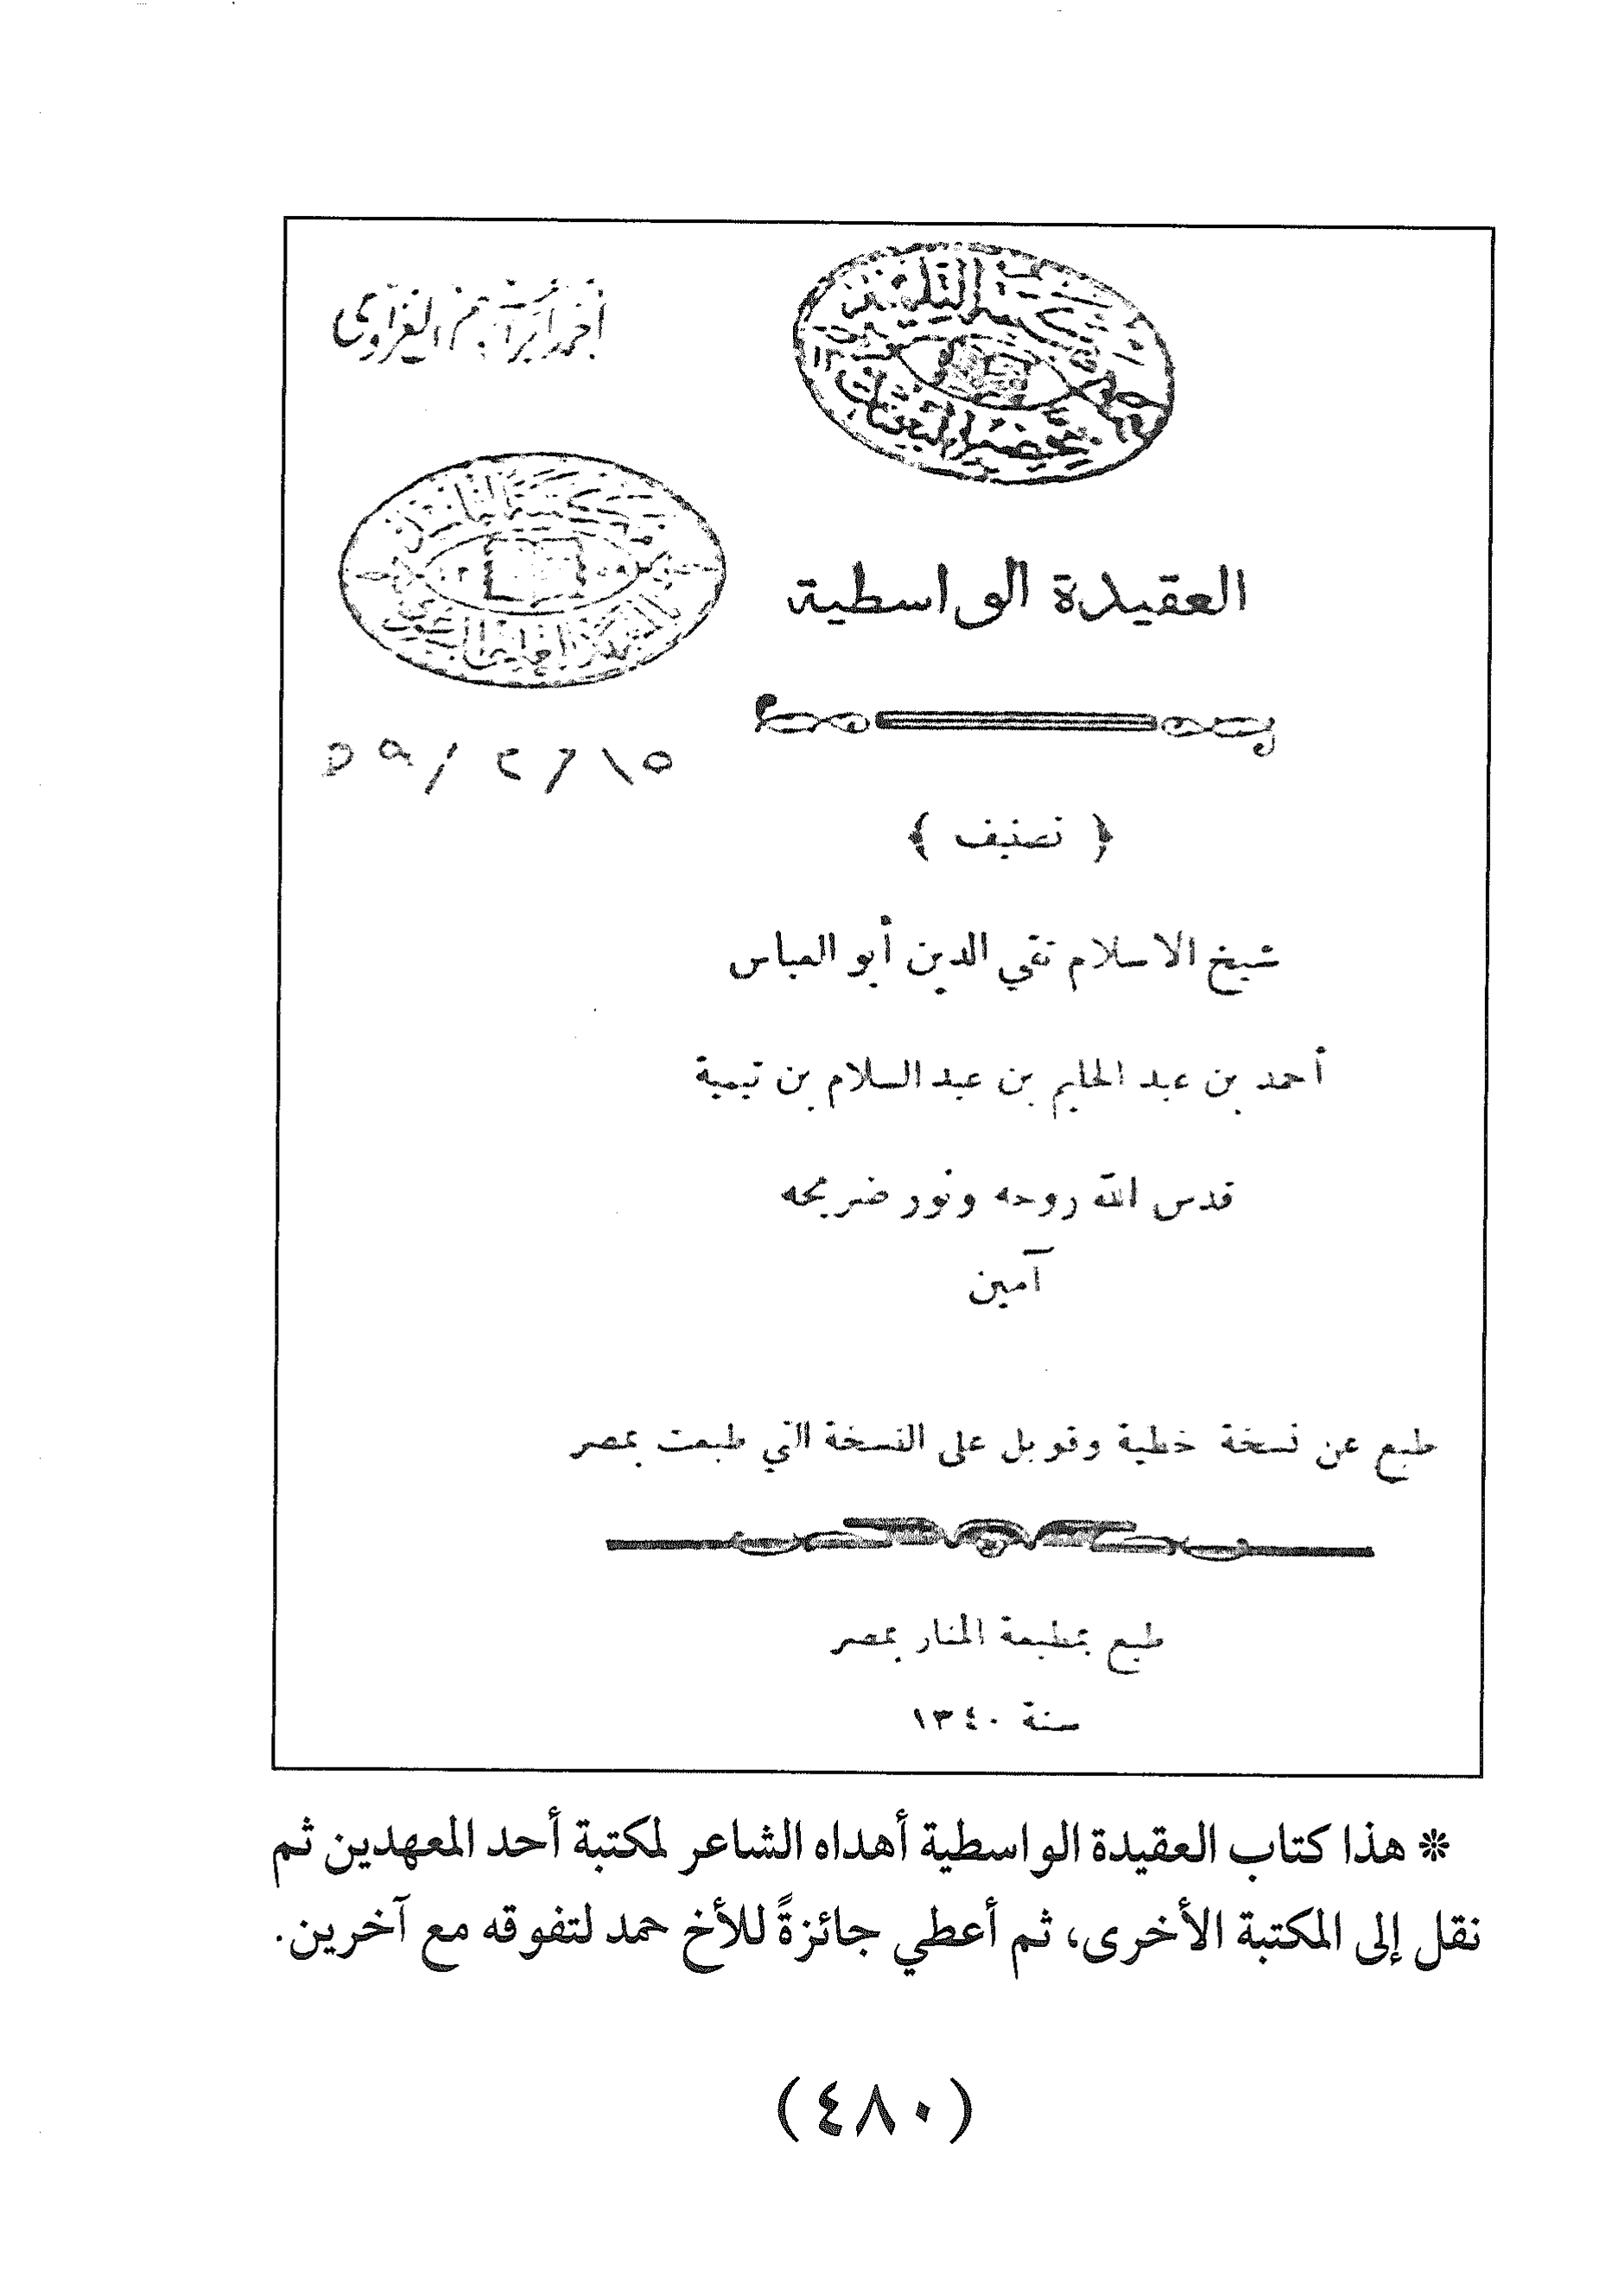 أحمد إبراهيم الغزاوي
العقيدة الواسطية
﴿ تصنيف ﴾
شيخ الاسلام تقي الدين أبو العباس
أحمد بن عبد الحليم بن عبد السلام بن تيمية
قدس الله روحه ونور ضريحه
آمين
طبع عن نسخة خطية وقوبل على النسخة التي طبعت بمصر
طبع بمطبعة المنار بمصر
سنة ١٣٤٠
* هذا كتاب العقيدة الواسطية أهداه الشاعر لمكتبة أحد المعهدين ثم
نقل إلى المكتبة الأخرى، ثم أعطي جائزةً للأخ حمد لتفوقه مع آخرين.
(٤٨٠)